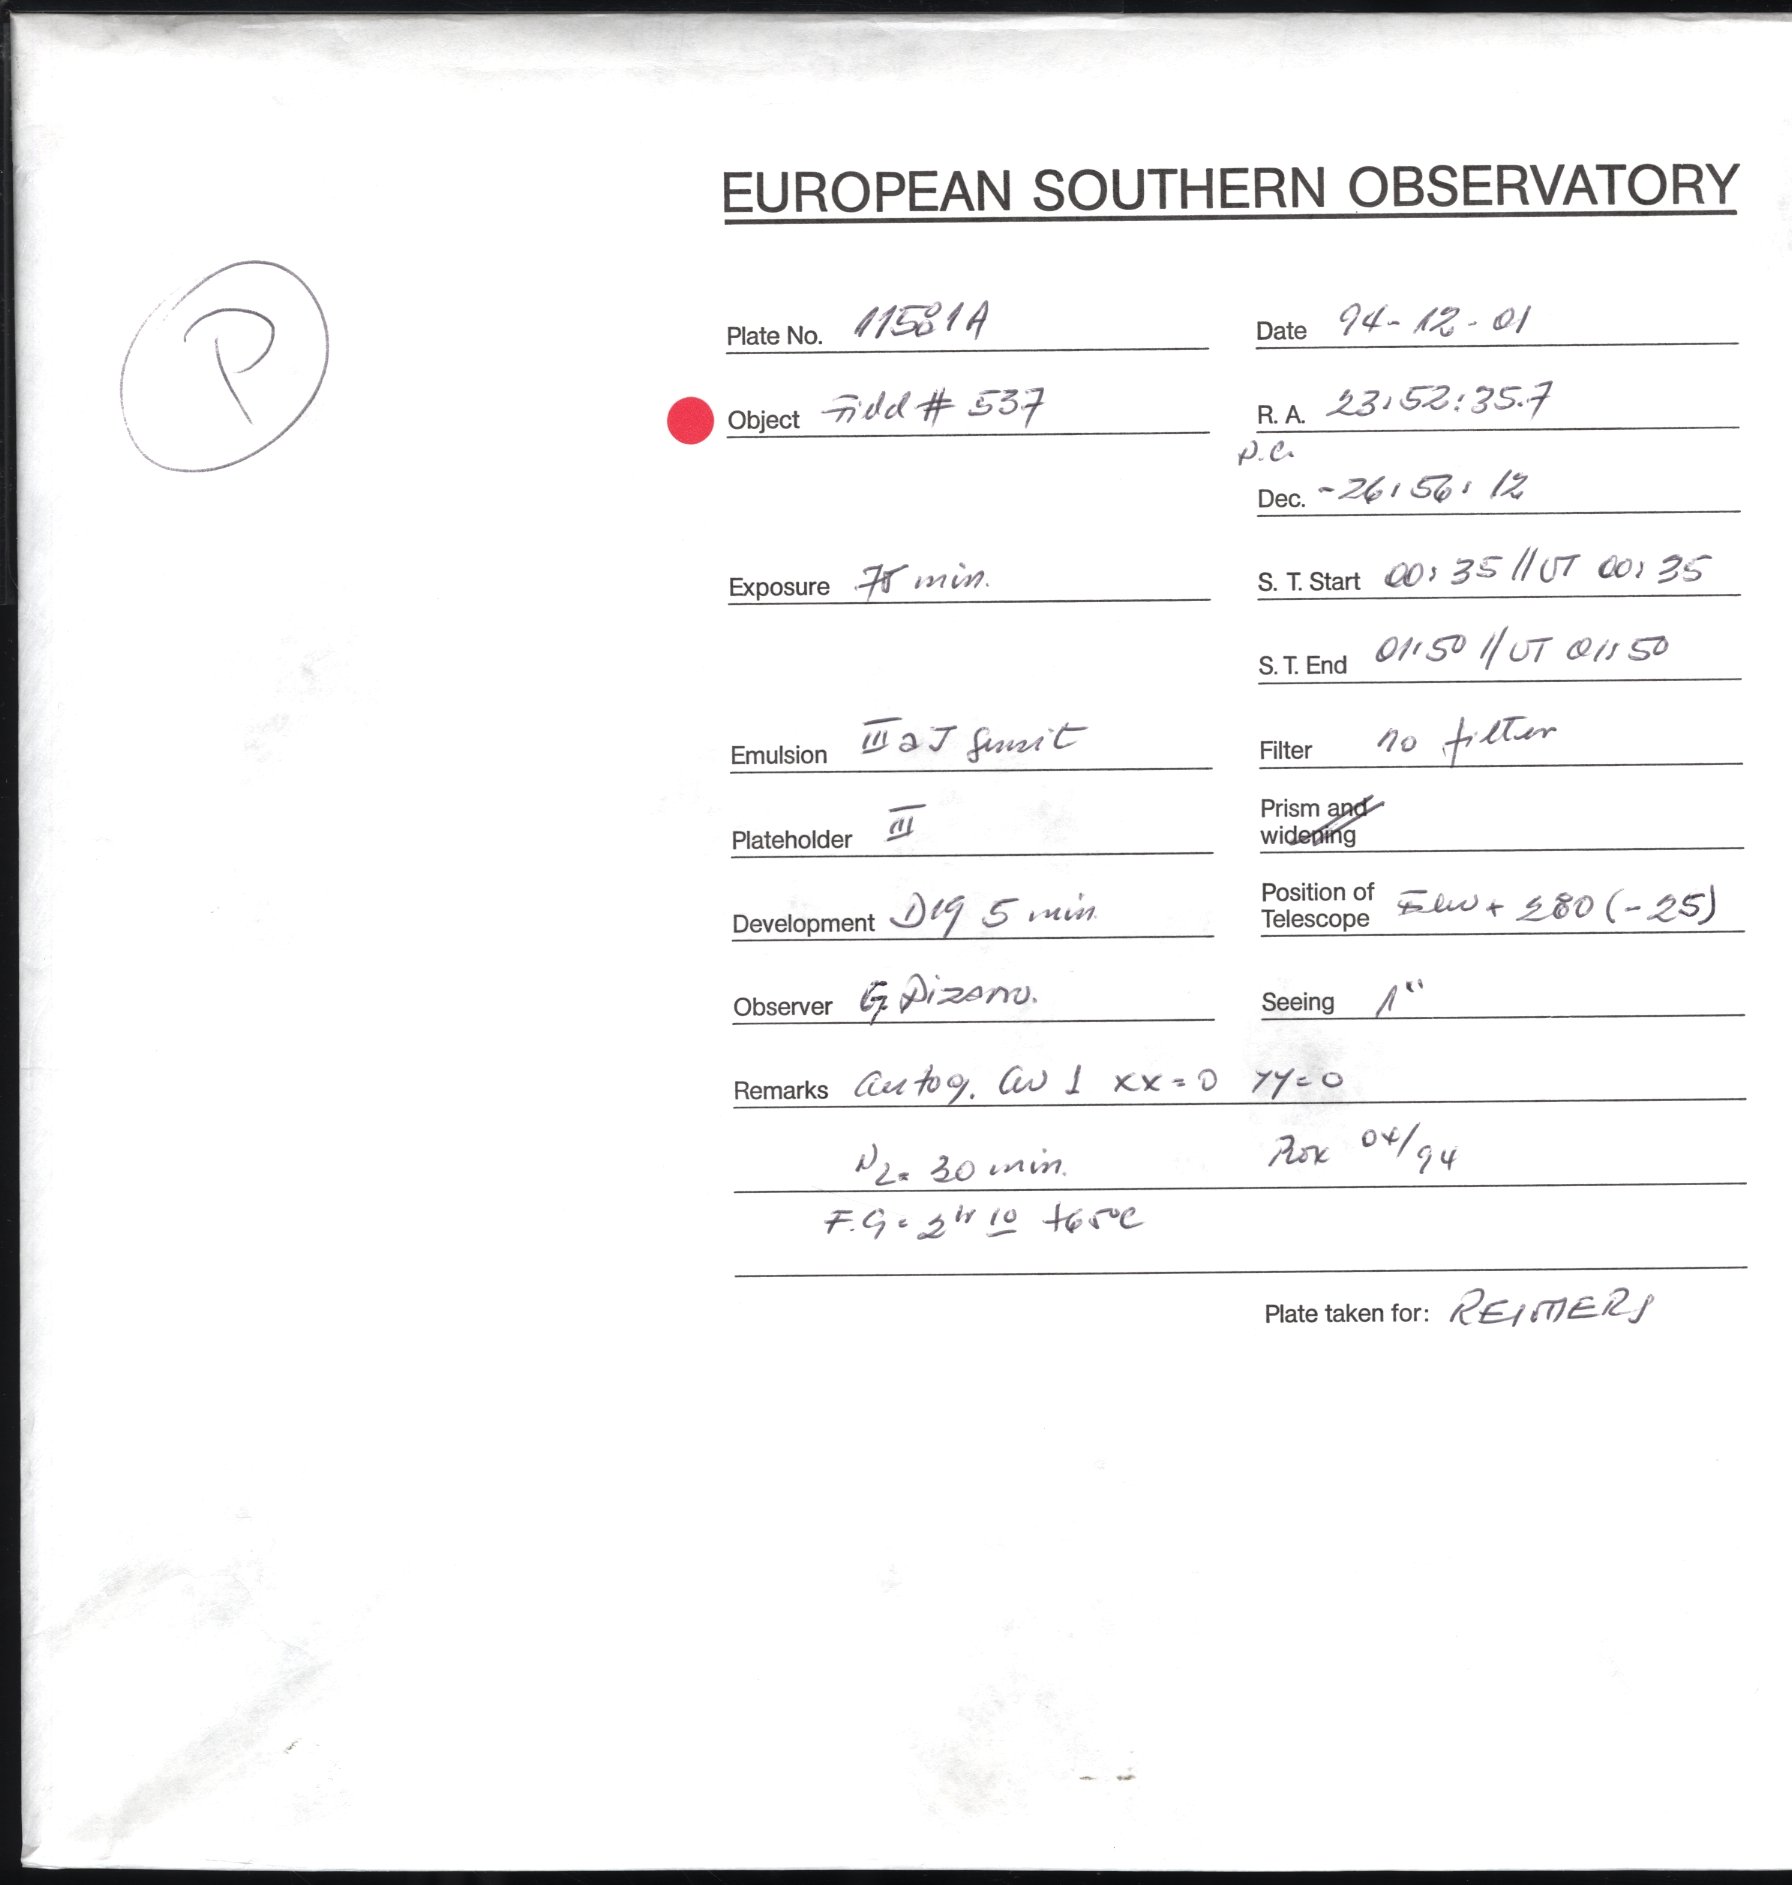 EUROPEAN SOUTHERN OBSERVATORY
P
Plate No. 11581A Date 94-12-01
Object Field # 537 R. A. 23:52:35.7
P.C.
Dec. -26:56:12
Exposure 75 min. S. T. Start 00:35 // UT 00:35
S. T. End 01:50 // UT 01:50
Emulsion III a J Filter no filter
Plateholder III Prism and widening
Development D19 5 min Position of Telescope + 280 (-25)
Observer G Pizarro. Seeing 1"
Remarks autog. 1 xx=0 yy=0
N2= 30 min. 04/94
F.G = 2hr 10 +65°C
Plate taken for: REIMERS